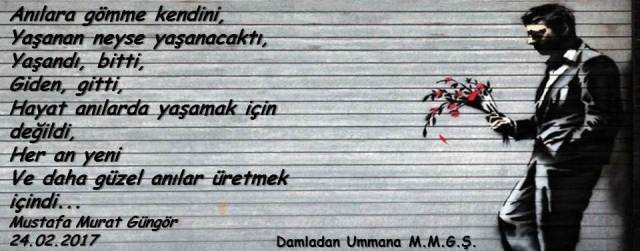 Anılara gömme kendini,
Yaşanan neyse yaşanacaktı,
Yaşandı, bitti,
Giden, gitti,
Hayat anılarda yaşamak için
değildi,
Her an yeni
Ve daha güzel anılar üretmek
içindi...
Mustafa Murat Güngör
24.02.2017
Damladan Ummana M.M.G.Ş.